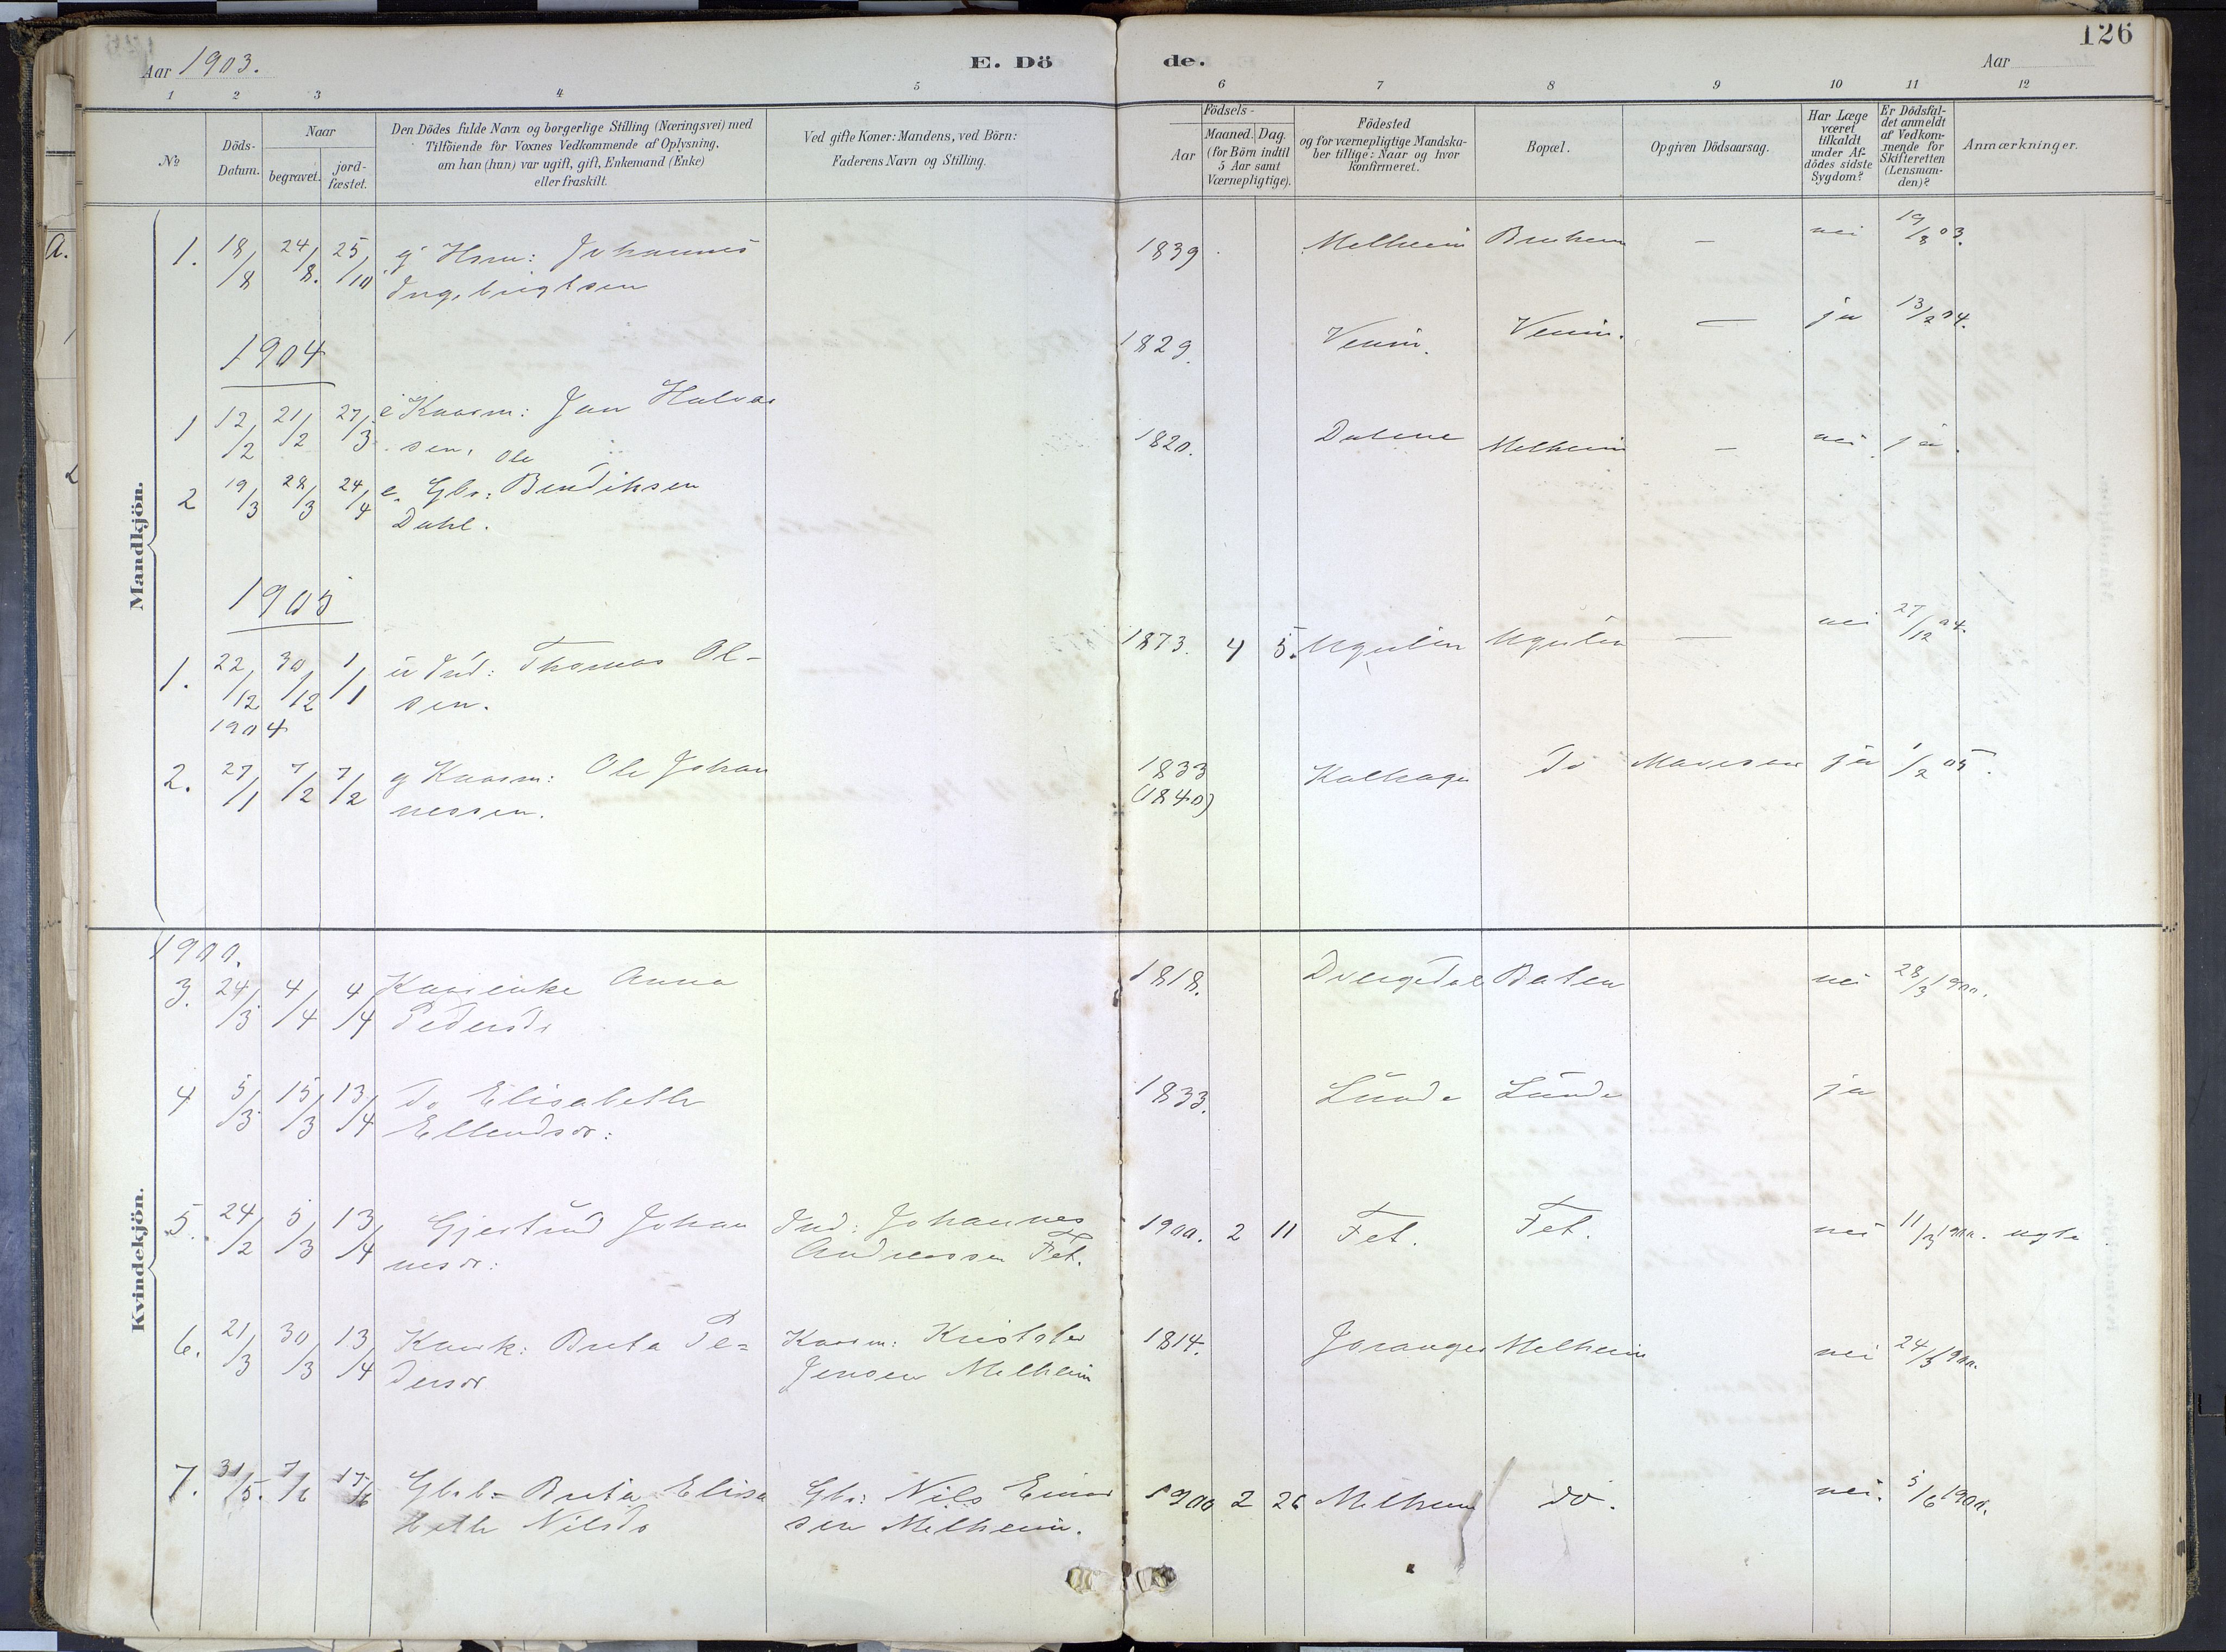 126
Aar 1903.
E. Dö
de.
Aar
1 2 3 4 5 6 7 8 9 10 11 12
No
Döds-
Datum.
Naar
begravet.
jord-
fæstet.
Den Dödes fulde Navn og borgerlige Stilling (Næringsvei) med
Tilföiende for Voxnes Vedkommende af Oplysning,
om han (hun) var ugift, gift, Enkemand (Enke)
eller fraskilt.
Ved gifte Koner: Mandens, ved Börn:
Faderens Navn og Stilling.
Födsels-
Aar
Maaned. Dag.
(for Börn indtil
5 Aar samt
Værnepligtige).
Födested
og for værnepligtige Mandska-
ber tillige: Naar og hvor
konfirmeret.
Bopæl.
Opgiven Dödsaarsag.
Har Læge
været
tilkaldt
under Af-
dödes sidste
Sygdom?
Er Dödsfal-
det anmeldt
af Vedkom-
mende for
Skifteretten
(Lensman-
den)?
Anmærkninger.
Mandkjön.
1. 18/8 24/8. 25/10 g Hsm: Johannes 1839 Melheim — nei 19/8 03.
Ingebrigtsen
1904
1 12/2 21/2 27/3 e Kaarm: Jan Halvor 1829. — ja 13/2 04.
sen.
2 19/3 28/3 24/4 e. Gbr: Ole Bendiksen 1820. Dalene Melheim — nei ja
Dahl.
1905
1. 22/12 30/12 1/1 u Ind: Thomas Ol- 1873. 4 5. — nei 27/12 04.
1904 sen.
2. 27/1 7/2 7/2 g Kaarm: Ole Johan 1833 do ja 1/2 05.
nessen. (1840)
Kvindekjön.
1900.
3. 24/3 4/4 4/4 Kaarenke Anna 1818. nei 28/3 1900.
Pedersdr
4 5/3 15/3 13/4 Do Elisabeth 1833. Lunde Lunde ja
Ellendsdr:
5. 24/2 5/3 13/4 Gjertrud Johan Ind: Johannes 1900. 2 11 Fet. Fet. nei 11/3 1900.
nesdr: Andreassen Fet.
6. 21/3 30/3 13/4 Kaark: Brita Pe= Kaarm: Kristofer 1814. Joranger Melheim nei 24/3 1900.
dersdr Jensen Melheim
7. 31/5. 7/6 17/6 Gbrb= Brita Elisa Gbr: Nils Einar 1900 2 26 Melheim do. nei. 5/6 1900.
beth Nilsdr sen Melheim.